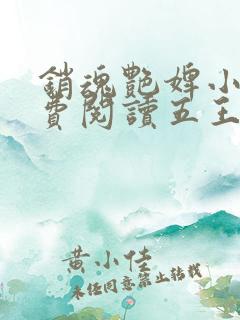 銷魂艷婢小
費閱讀五王
黃小佳
未经同意禁止转载